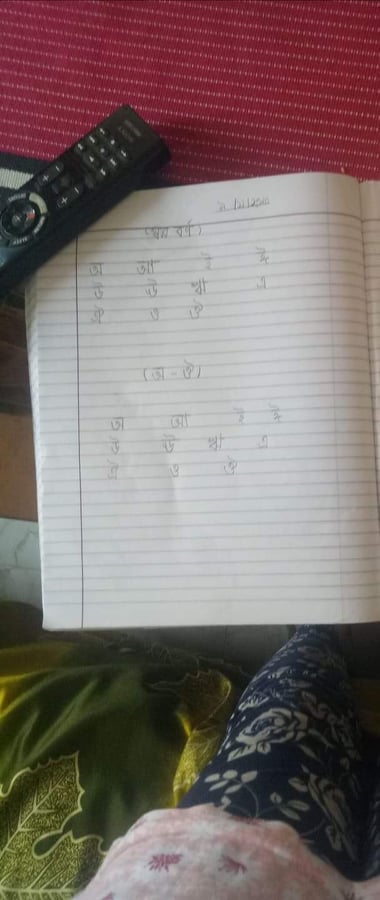 (স্বর বর্ণ)
অ আ ই ঈ
উ ঊ ঋ এ
ঐ ও ঔ
(অ - ঔ)
অ আ ই ঈ
উ ঊ ঋ এ
ঐ ও ঔ